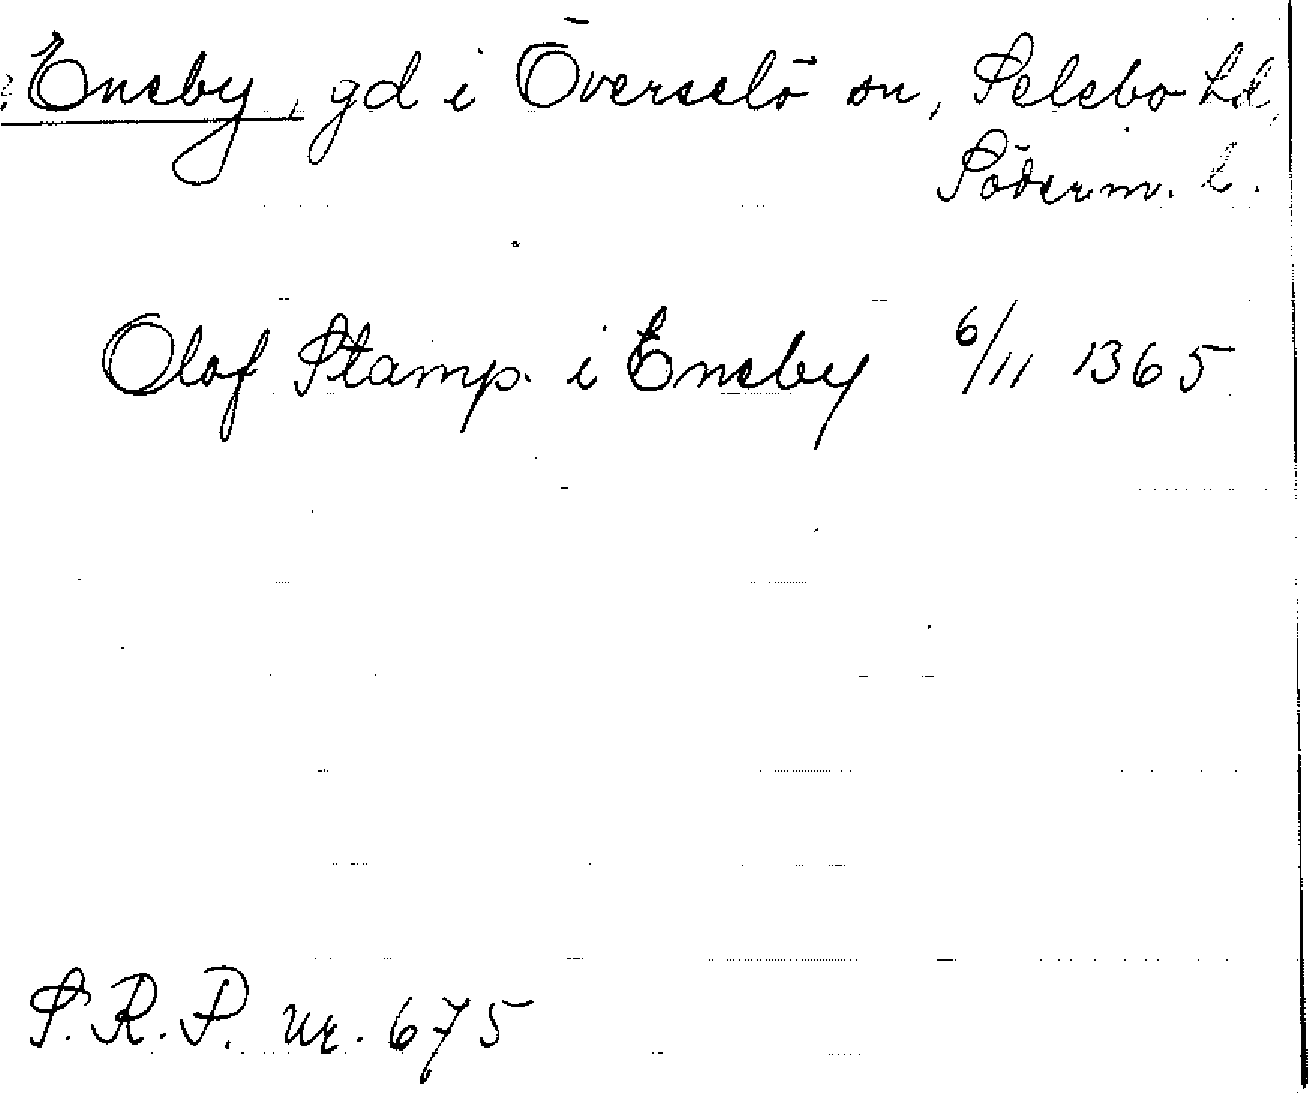 Ensby, gd i Överselö sn, Selebo hd,
Söderm. l.
Olof Stamp. i Ensby 6/11 1365
S.R.P. nr. 675